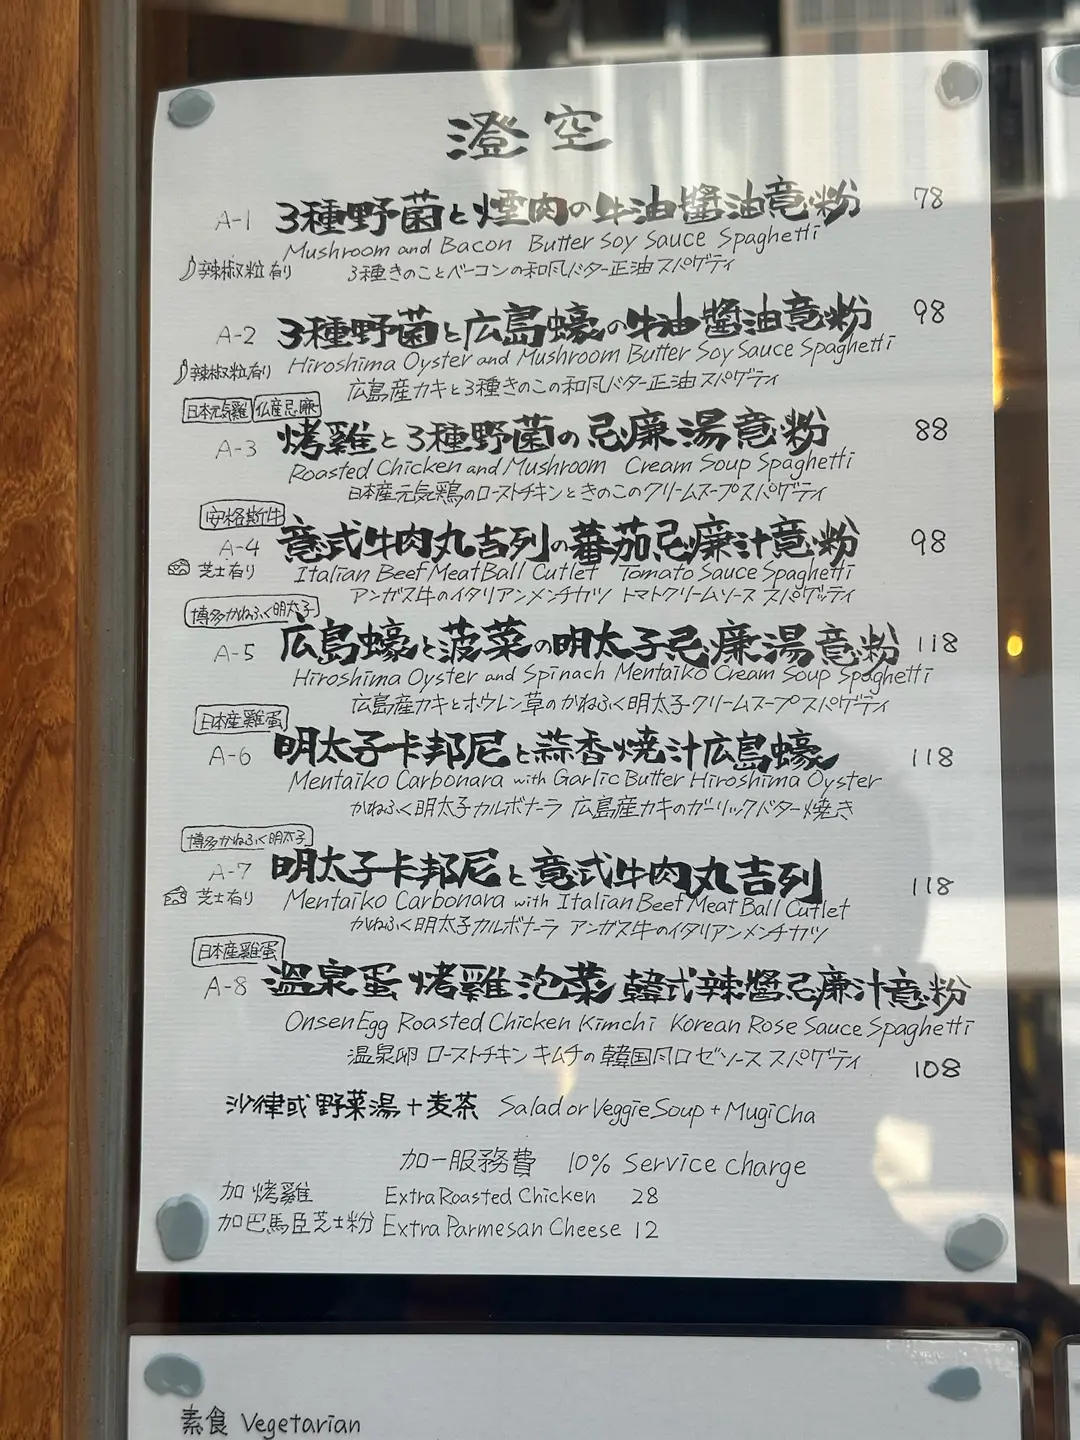 澄空
A-1 3種野菌と煙肉の牛油醬油意粉 78
Mushroom and Bacon Butter Soy Sauce Spaghetti
辣椒粒有り 3種きのことベーコンの和風バター正油スパゲティ
A-2 3種野菌と広島蠔の牛油醬油意粉 98
Hiroshima Oyster and Mushroom Butter Soy Sauce Spaghetti
辣椒粒有り 広島産カキと3種きのこの和風バター正油スパゲティ
日本元気雞 仏産忌廉
A-3 烤雞と3種野菌の忌廉湯意粉 88
Roasted Chicken and Mushroom Cream Soup Spaghetti
日本産元気鶏のローストチキンときのこのクリームスープスパゲティ
安格斯牛
A-4 意式牛肉丸吉列の蕃茄忌廉汁意粉 98
Italian Beef Meat Ball Cutlet Tomato Sauce Spaghetti
芝士有り アンガス牛のイタリアンメンチカツ トマトクリームソース スパゲッティ
博多かねふく明太子
A-5 広島蠔と菠菜の明太子忌廉湯意粉 118
Hiroshima Oyster and Spinach Mentaiko Cream Soup Spaghetti
広島産カキとホウレン草のかねふく明太子クリームスープスパゲティ
日本産雞蛋
A-6 明太子卡邦尼と蒜香燒汁広島蠔 118
Mentaiko Carbonara with Garlic Butter Hiroshima Oyster
かねふく明太子カルボナーラ 広島産カキのガーリックバター焼き
博多かねふく明太子
A-7 明太子卡邦尼と意式牛肉丸吉列 118
Mentaiko Carbonara with Italian Beef Meat Ball Cutlet
芝士有り かねふく明太子カルボナーラ アンガス牛のイタリアンメンチカツ
日本産雞蛋
A-8 温泉蛋 烤雞泡菜 韓式辣醬忌廉汁意粉
Onsen Egg Roasted Chicken Kimchi Korean Rose Sauce Spaghetti
温泉卵 ローストチキン キムチの韓国風ロゼソース スパゲティ 108
沙律或 野菜湯+麦茶 Salad or Veggie Soup + Mugi Cha
加一服務費 10% Service charge
加 烤雞 Extra Roasted Chicken 28
加巴馬臣芝士粉 Extra Parmesan Cheese 12
素食 Vegetarian